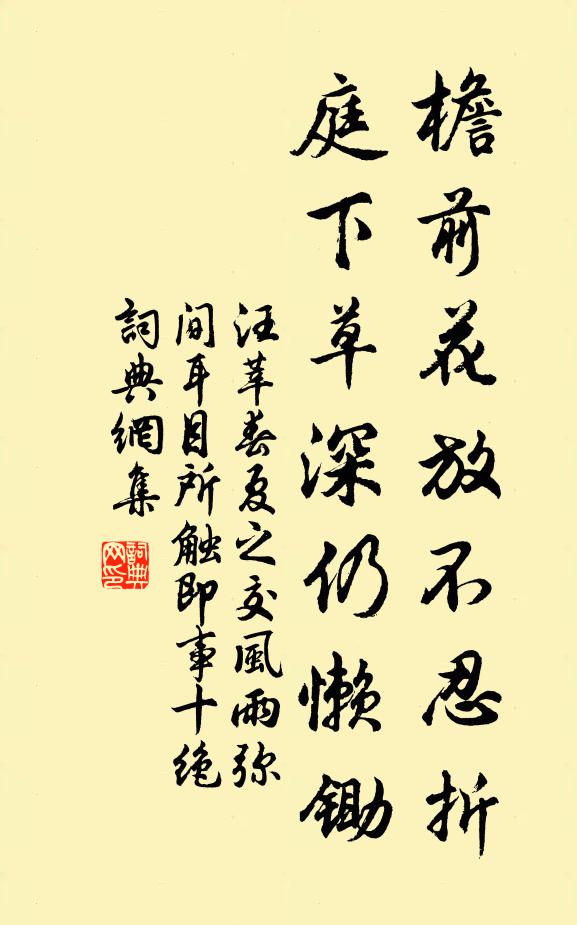 檐前花放不忍折
庭下草深仍懶鋤
汪莘春夏之交風雨弥
間耳目所触即事十絶
詞典網集
詞典
网印